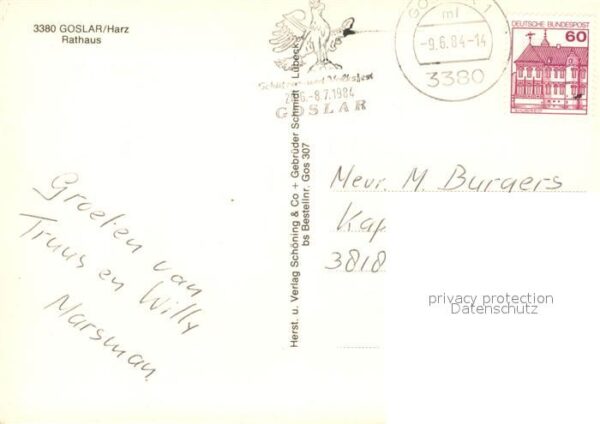 3380 GOSLAR/Harz
Rathaus
Schützen- und Volksfest
GOSLAR
GOSLAR 1
ml
-9.6.84-14
3380
DEUTSCHE BUNDESPOST
60
Herst. u. Verlag Schöning & Co + Gebrüder Schmidt - Lübeck
bs Bestellnr. Gos 307
Groeten van
Truus en Willy
Marsman
Mevr. M. Burgers
Kap
3818
privacy protection
Datenschutz